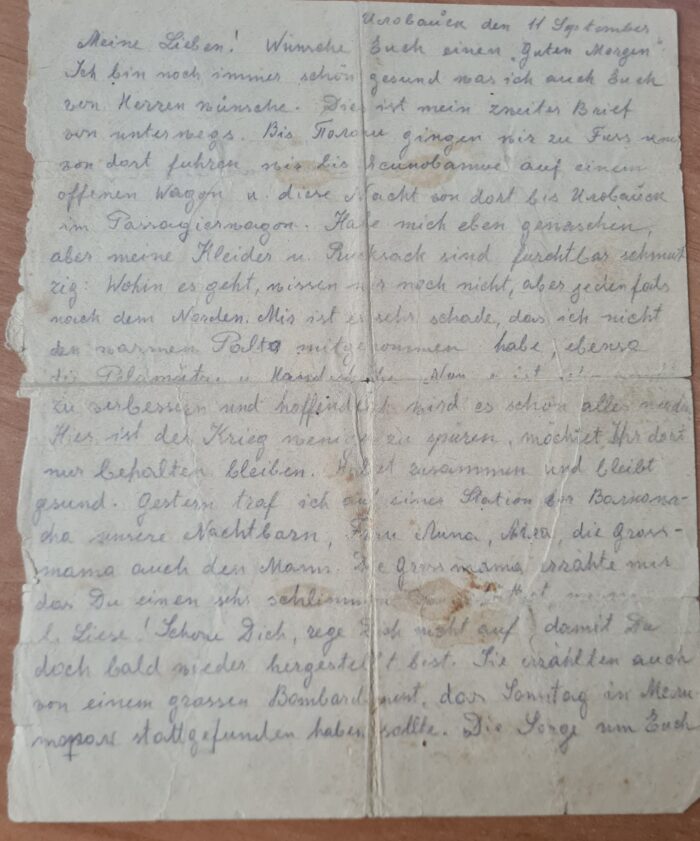 Иловайск den 11 September
Meine Lieben! Wünsche Euch einen "Guten Morgen"
Ich bin noch immer schön gesund was ich auch Euch
von Herzen wünsche. Dies ist mein zweiter Brief
von unterwegs. Bis Пологи gingen wir zu Fuss und
von dort fuhren wir bis auf einem
offenen Wagon u. diese Nacht von dort bis Иловайск
im Passagierwagon. Habe mich eben genaschen,
aber meine Kleider u. Rucksack sind furchtbar schmut
zig. Wohin es geht, wissen wir noch nicht, aber jedenfals
nach dem Norden. Mir ist es sehr schade, das ich nicht
den warmen Palto mitgenommen habe, ebenso
die u Nun
zu verbessern und hoffendlich wird es schon alles
Hier ist der Krieg weniger zu spüren, möchtet Ihr dort
nur behalten bleiben. zusammen und bleibt
gesund. Gestern traf ich auf einer Station
unsere Nachtbarn, Frau Anna, die Gross-
mama auch den Mann. Die Grossmama erzählte mir
das Du einen sehr schlimmen
Liese! Schone Dich, rege Dich nicht auf damit Du
doch bald wieder hergestellt bist. Sie erzählten auch
von einem grossen Bombardement, das Sonntag in Мели
тополь stattgefunden haben sollte. Die Sorge um Euch